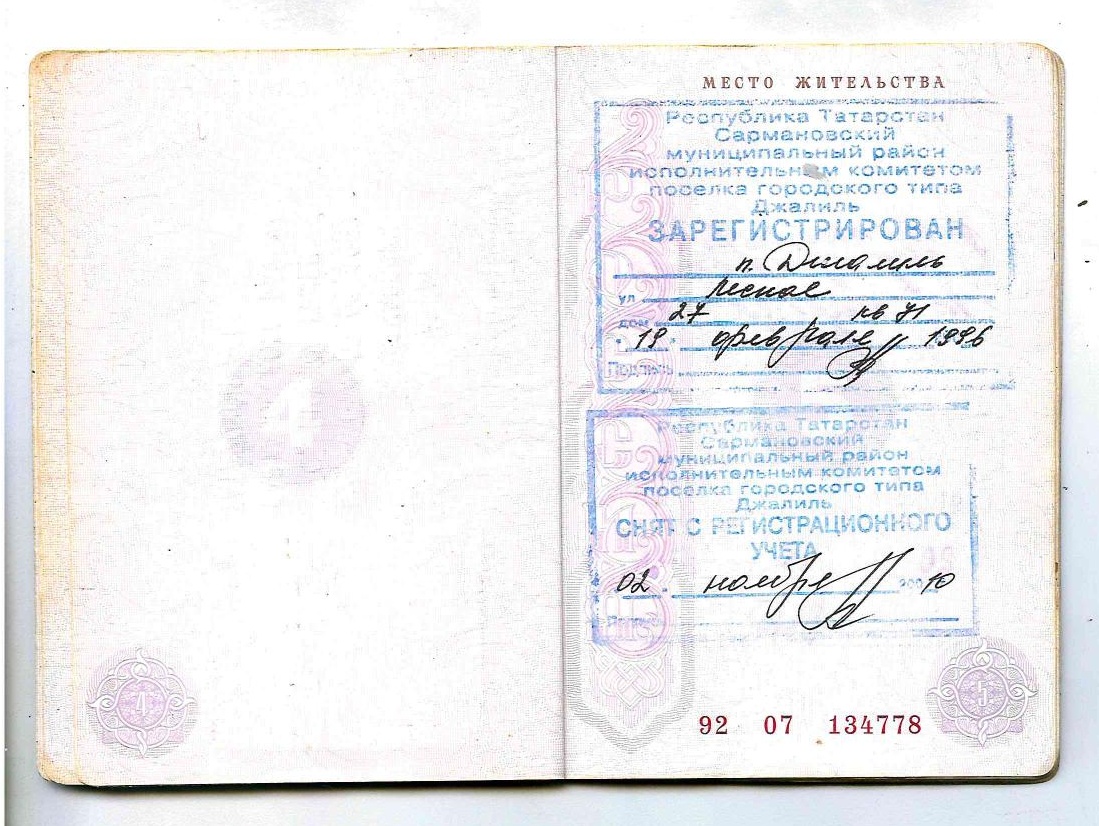 МЕСТО ЖИТЕЛЬСТВА
Республика Татарстан
Сармановский
муниципальный район
исполнительным комитетом
поселка городского типа
Джалиль
ЗАРЕГИСТРИРОВАН
п. Джалиль
ул Лесная
дом 27 кв 71
19 февраля 1996
Подпись
Республика Татарстан
Сармановский
муниципальный район
исполнительным комитетом
поселка городского типа
Джалиль
СНЯТ С РЕГИСТРАЦИОННОГО
УЧЕТА
02 ноября 2010
Подпись
92 07 134778
4
4
5